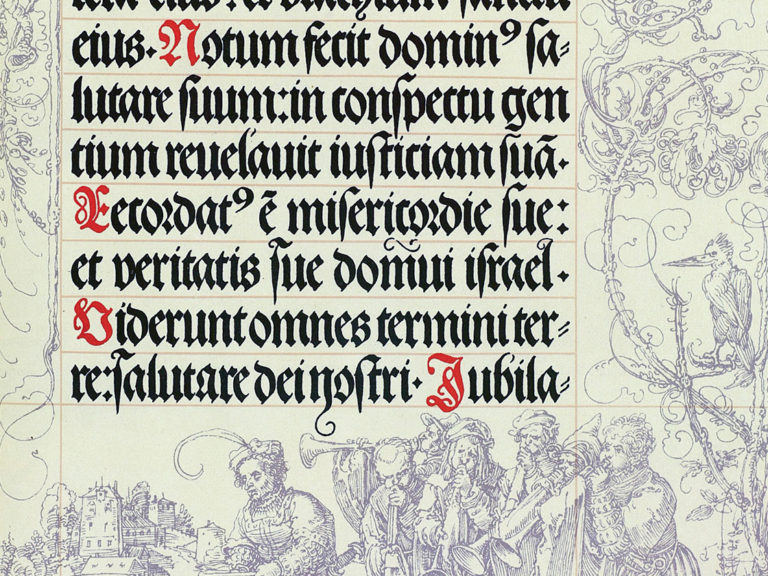 tera eius: et brachium ſanctum
eius. Notum fecit dominꝰ ſa⸗
lutare ſuum: in conſpectu gen
tium reuelauit iuſticiam ſuā.
Recordatꝰ ē miſericordie ſue:
et veritatis ſue domui iſrael.
Viderunt omnes termini ter⸗
re: ſalutare dei noſtri. Jubila⸗